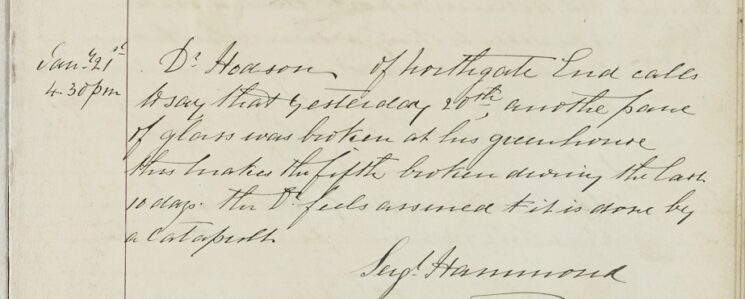 Jany. 21st
4.30pm
Dr. Hodson of Northgate End calls
to say that yesterday 20th, anothe pane
of glass was broken at his greenhouse
this makes the fifth broken during the last
10 days. the Dr. feels assured + it is done by
a catapult
Sergt. Hammond